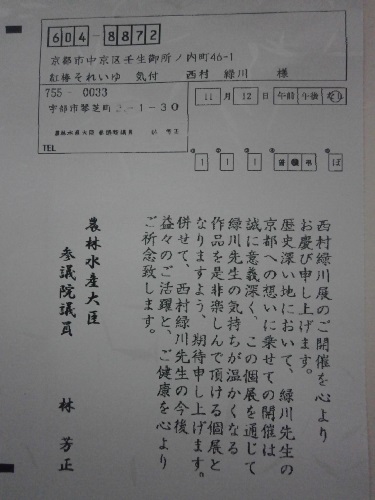 604-8872
京都市中京区壬生御所ノ内町46-1
それいゆ 気付 西村 緑川 様
755-0033
宇部市琴芝町 -1-30
農林水産大臣 参議院議員 林 芳正
TEL
11月12日 午前 午後 なし
1 1 1
西村緑川展のご開催を心より
お慶び申し上げます。
歴史深い地において、緑川先生の
京都への想いに乗せての開催は
誠に意義深く、この個展を通じて
緑川先生の気持ちが温かくなる
作品を是非楽しんで頂ける個展と
なりますよう、期待申し上げます。
併せて、西村緑川先生の今後
益々のご活躍と、ご健康を心より
ご祈念致します。
農林水産大臣
参議院議員 林 芳正